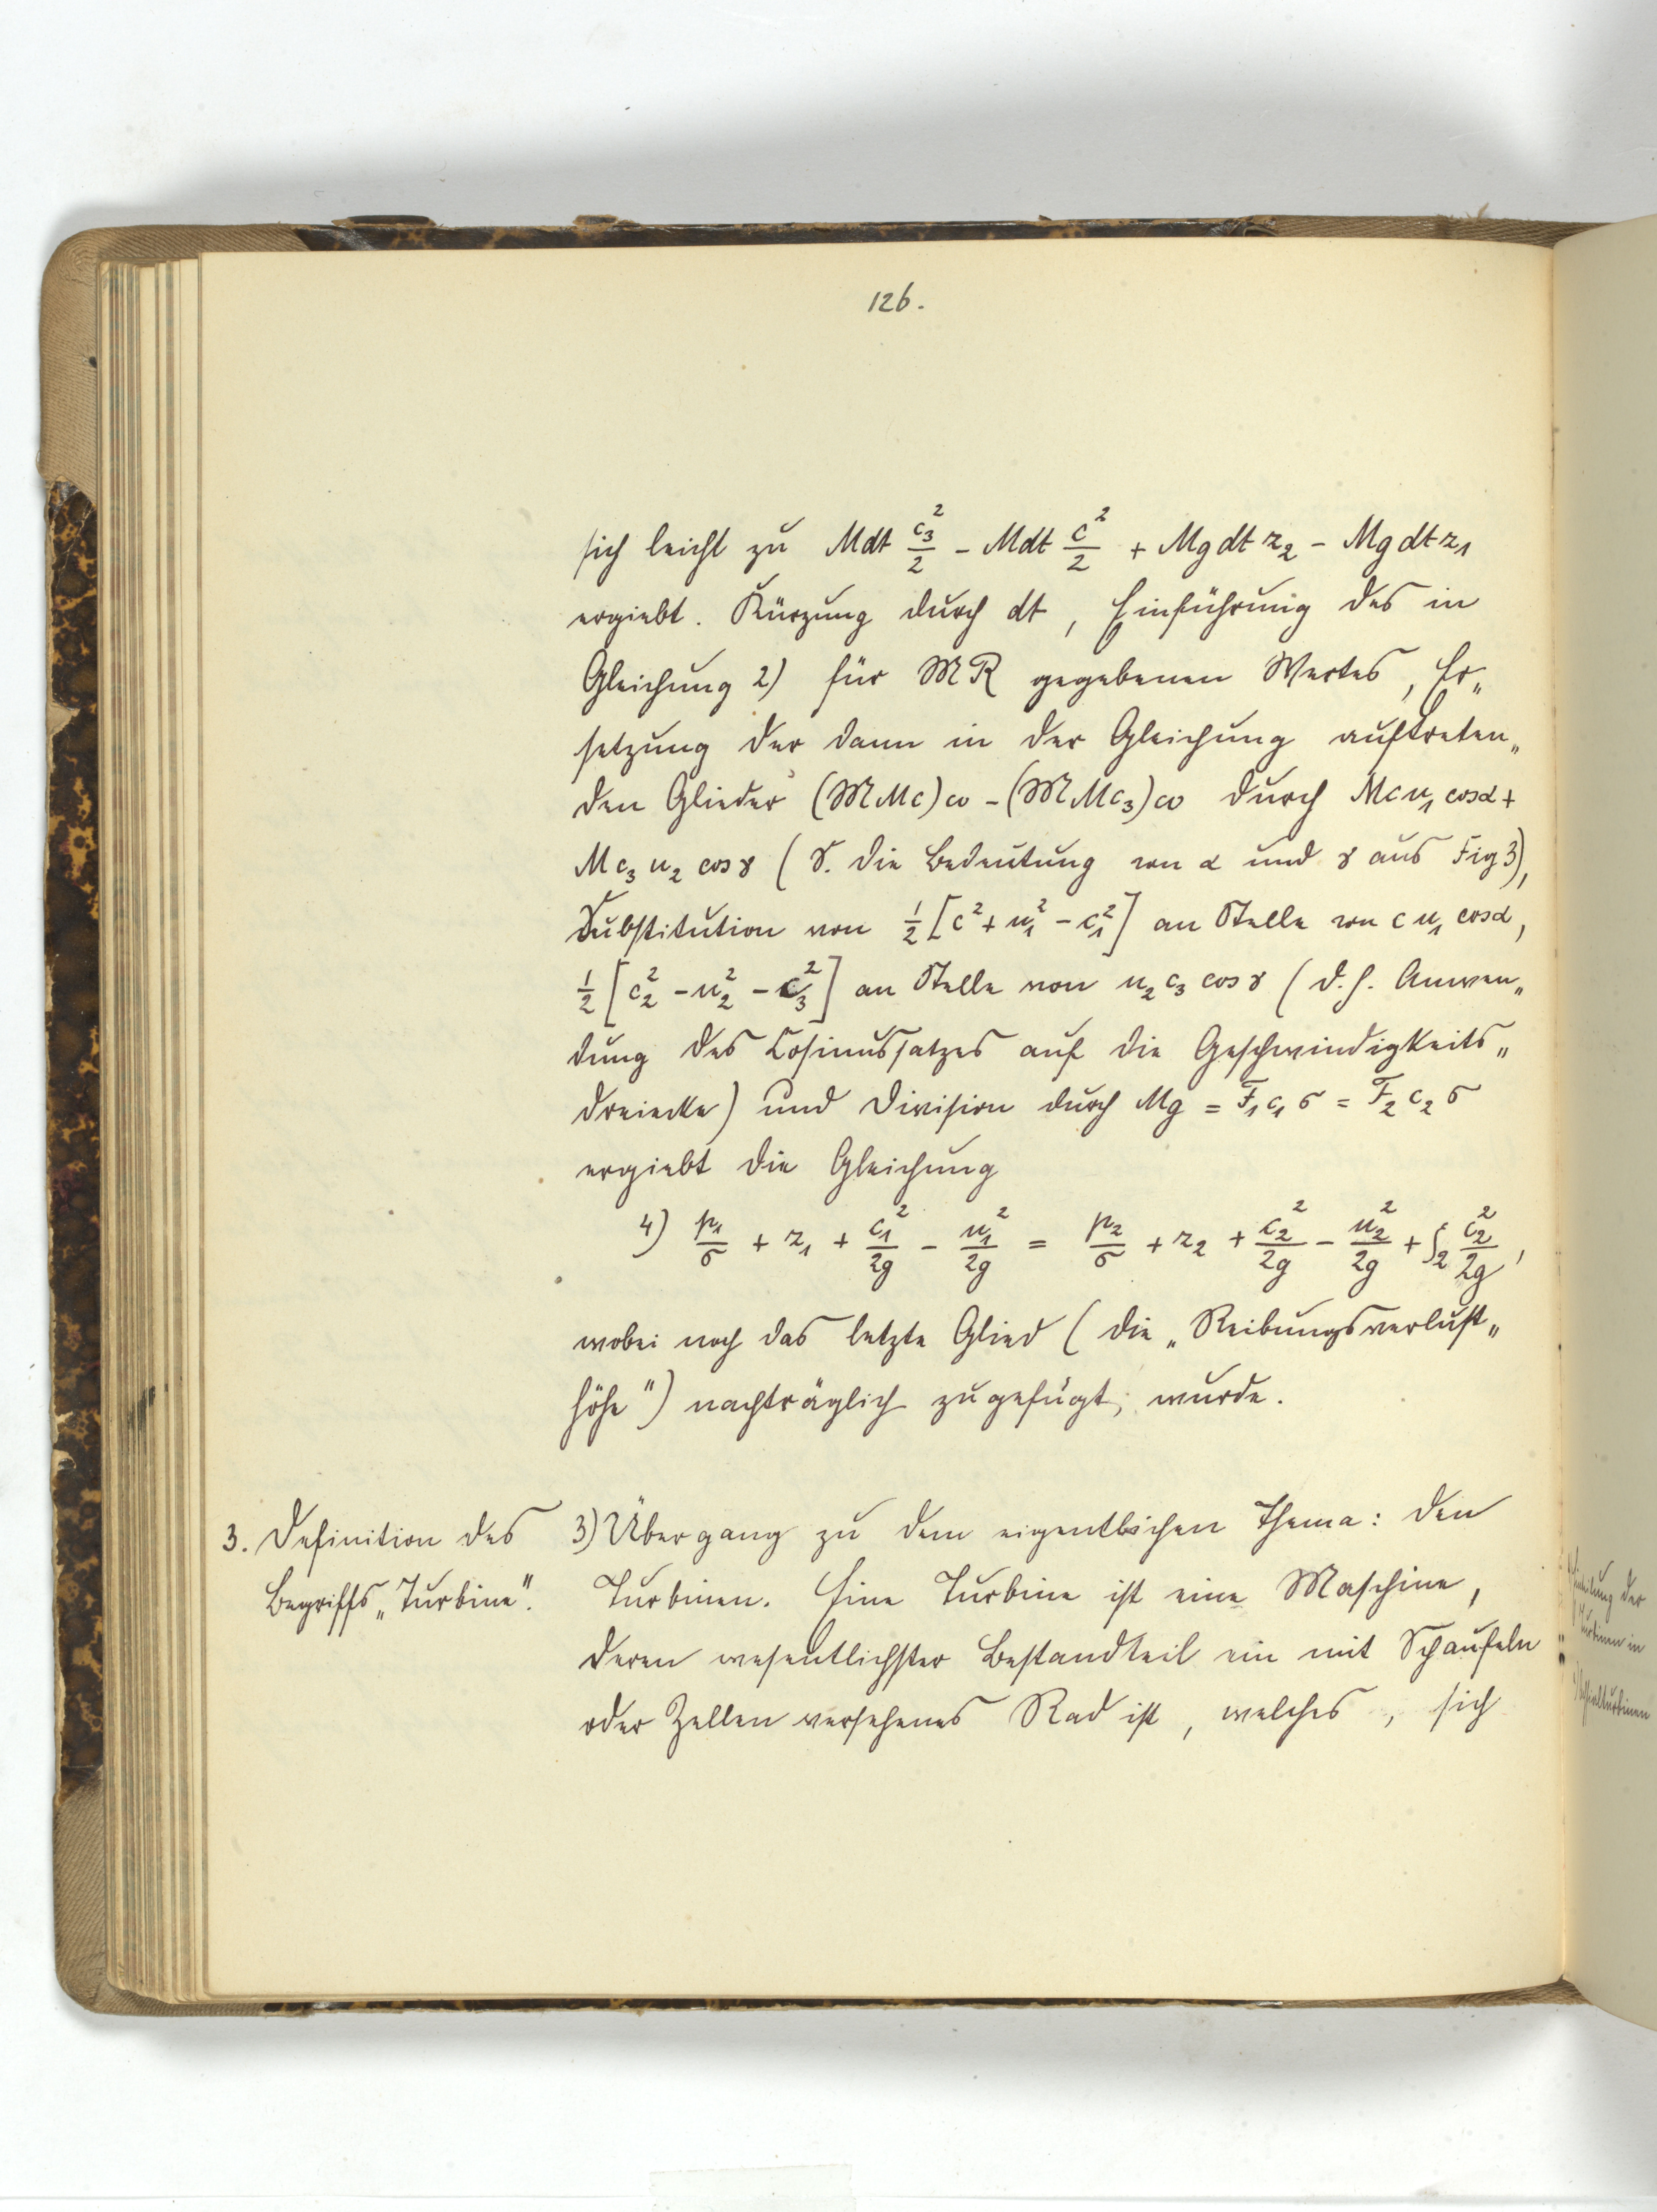 126.
sich leicht zu Mdt c₃²/2 – Mdt c²/2 + Mgdt z₂ – Mgdt z₁
ergiebt. Kürzung durch dt, Einführung des in
Gleichung 2) für 𝔐R gegebenen Wertes, Er„
setzung der dann in der Gleichung auftreten„
den Glieder (𝔐Mc)ω – (𝔐Mc₃)ω durch Mcu₁ cosα +
Mc₃ u₂ cosγ (S. die Bedeutung von α und γ aus Fig 3),
Substitution von ½[c² + u₁² – c₁²] an Stelle von c u₁ cosα,
½[c₂² – u₂² – c₃²] an Stelle von u₂ c₃ cosγ (d.h. Anwen„
dung des Cosinussatzes auf die Geschwindigkeits„
dreiecke) und Division durch Mg = F₁c₁σ = F₂c₂σ
ergiebt die Gleichung
4) p₁/σ + z₁ + c₁²/2g – u₁²/2g = p₂/σ + z₂ + c₂²/2g – u₂²/2g + ζ₂ c₂²/2g,
wobei noch das letzte Glied (die „Reibungsverlust„
höhe") nachträglich zugefügt, wurde.
3. Definition des
Begriffs „Turbine".
3) Übergang zu dem eigentlichen Thema: den
Turbinen. Eine Turbine ist eine Maschine,
deren wesentlichster Bestandteil ein mit Schaufeln
oder Zellen versehenes Rad ist, welches, sich
Einteilung der
Turbinen in